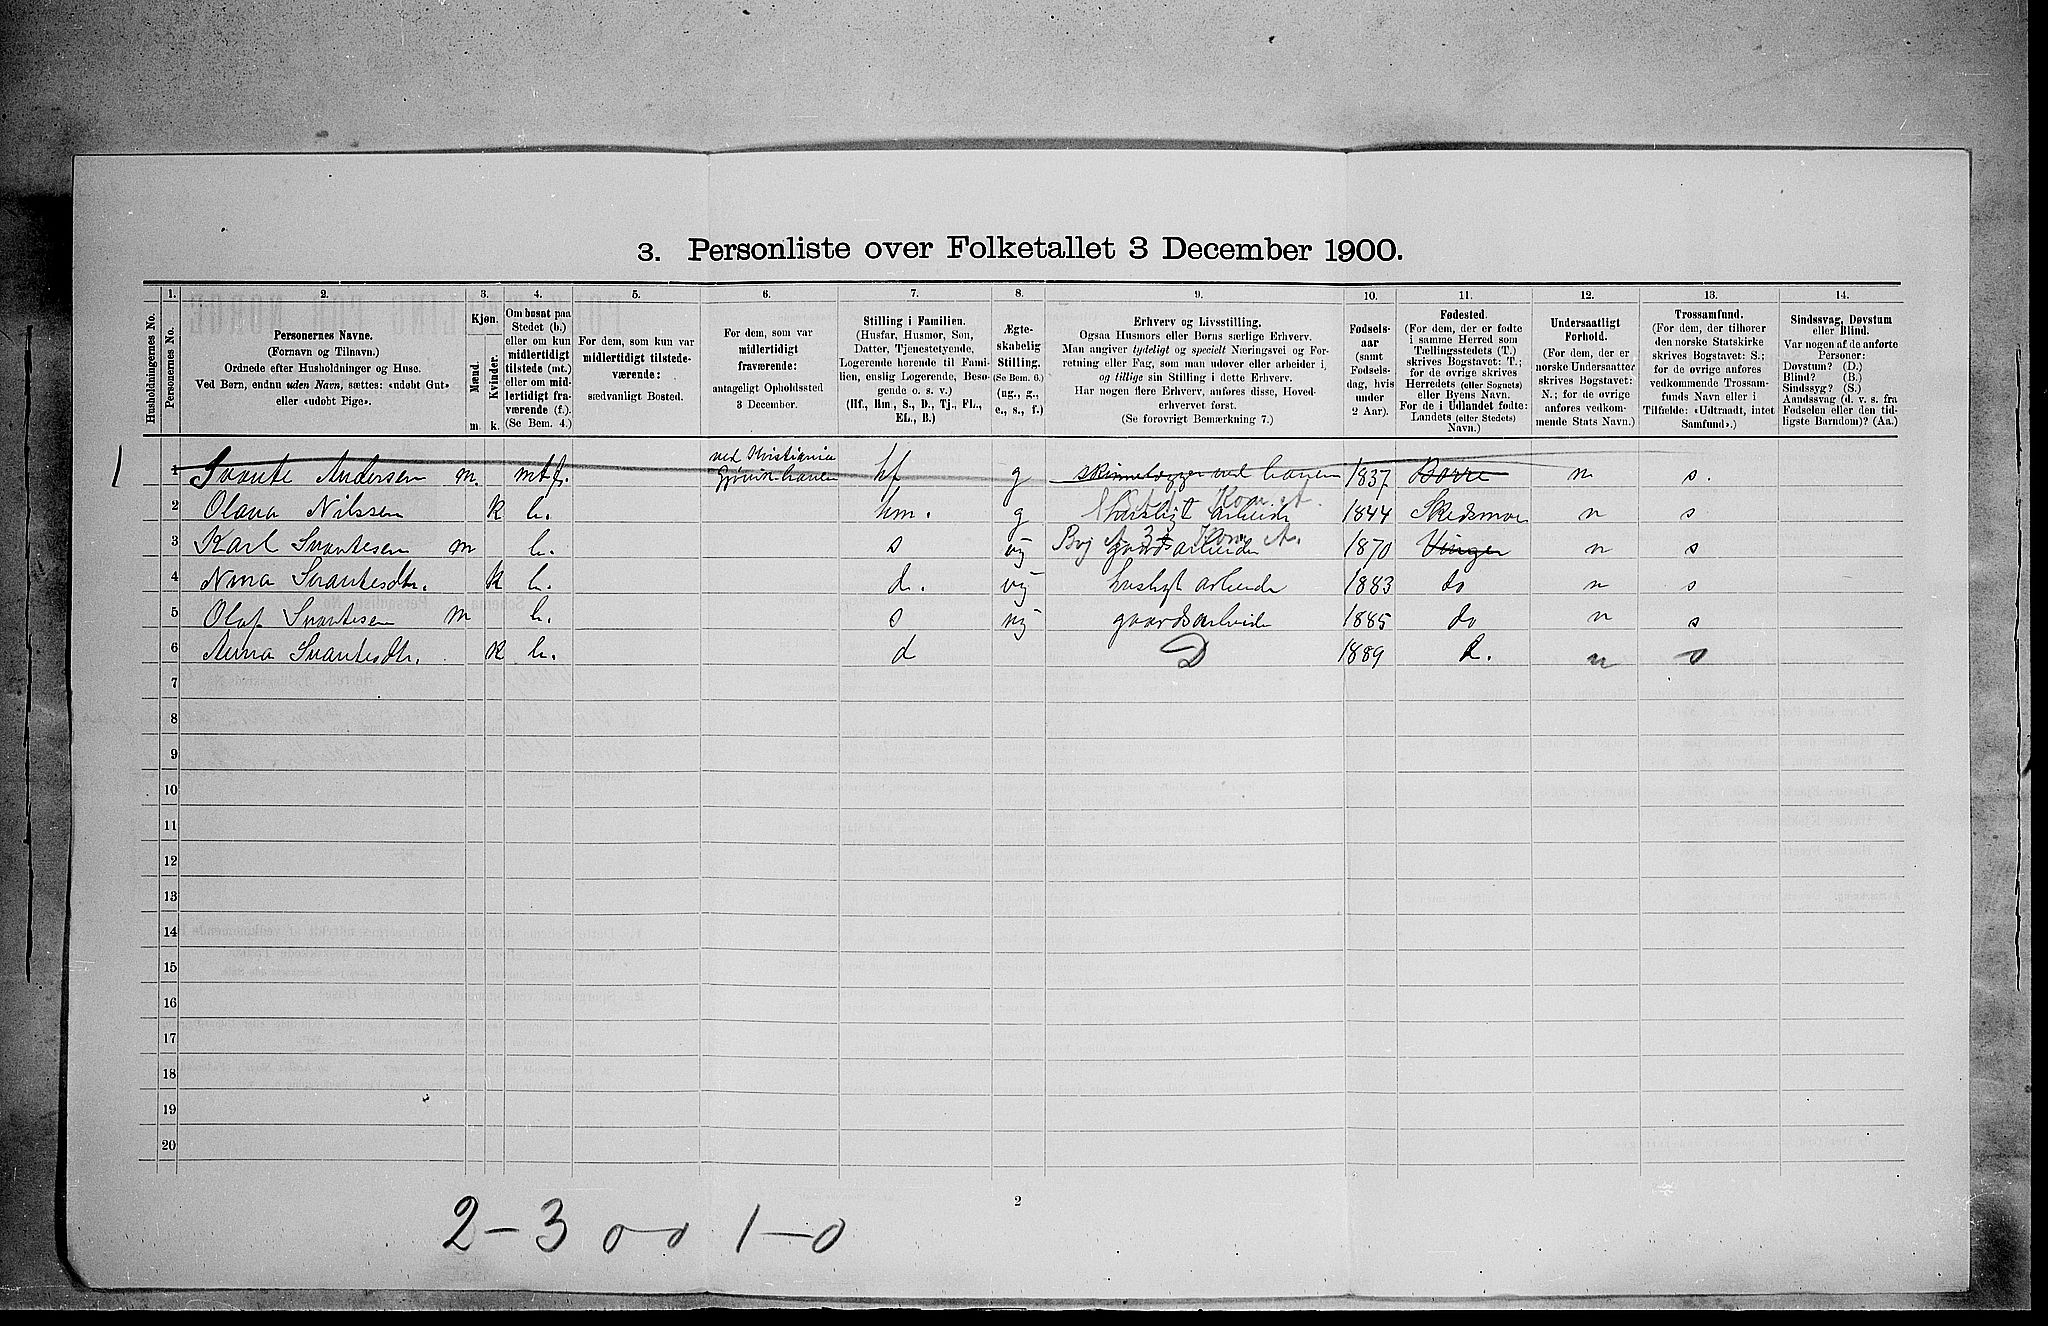 3. Personliste over Folketallet 3 December 1900.
1. 2. 3. 4. 5. 6. 7. 8. 9. 10. 11. 12. 13. 14.
Husholdningernes No.
Personernes No.
Personernes Navne.
(Fornavn og Tilnavn.)
Ordnede efter Husholdninger og Huse.
Ved Børn, endnu uden Navn, sættes: «udøbt Gut»
eller «udøbt Pige».
Kjøn.
Mænd.
Kvinder.
m. k.
Om bosat paa
Stedet (b.)
eller om kun
midlertidigt
tilstede (mt.)
eller om mid-
lertidigt fra-
værende (f.)
(Se Bem. 4.)
For dem, som kun var
midlertidigt tilstede-
værende:
sædvanligt Bosted.
For dem, som var
midlertidigt
fraværende:
antageligt Opholdssted
3 December.
Stilling i Familien.
(Husfar, Husmor, Søn,
Datter, Tjenestetyende,
Logerende hørende til Fami-
lien, enslig Logerende, Besø-
gende o. s. v.)
(Hf., Hm., S., D., Tj., FL.,
EL., B.)
Ægte-
skabelig
Stilling.
(Se Bem. 6.)
(ug., g.,
e., s., f.)
Erhverv og Livsstilling.
Ogsaa Husmors eller Børns særlige Erhverv.
Man angiver tydeligt og specielt Næringsvei og For-
retning eller Fag, som man udøver eller arbeider i,
og tillige sin Stilling i dette Erhverv.
Har nogen flere Erhverv, anføres disse, Hoved-
erhvervet først.
(Se forøvrigt Bemærkning 7.)
Fødsels-
aar
(samt
Fødsels-
dag, hvis
under
2 Aar).
Fødested.
(For dem, der er fødte
i samme Herred som
Tællingsstedets (T.)
skrives Bogstavet: T.;
for de øvrige skrives
Herredets (eller Sognets)
eller Byens Navn.
For de i Udlandet fødte:
Landets (eller Stedets)
Navn.)
Undersaatligt
Forhold.
(For dem, der er
norske Undersaatter
skrives Bogstavet:
N.; for de øvrige
anføres vedkom-
mende Stats Navn.)
Trossamfund.
(For dem, der tilhører
den norske Statskirke
skrives Bogstavet: S.;
for de øvrige anføres
vedkommende Trossam-
funds Navn eller i
Tilfælde: «Udtraadt, intet
Samfund».)
Sindssvag, Døvstum
eller Blind.
Var nogen af de anførte
Personer:
Døvstum? (D.)
Blind? (B.)
Sindssyg? (S.)
Aandssvag (d. v. s. fra
Fødselen eller den tid-
ligste Barndom)? (Aa.)
ved Kristiania
1 1 Svante Andersen m. mtf. hf g 1837 Borre n s.
2 Olava Nilssen k b. hm. g husligt arbeide 1844 Skedsmo n s
3 Karl Svantesen m b. s ug gaardsarbeide 1870 Vinger n s
4 Nina Svantesdtr. k b. d. ug husligt arbeide 1883 do n s
5 Olaf Svantesen m b. s ug gaardsarbeide 1885 do n s
6 Anna Svantesdtr. k b. d D 1889 d. n s
7
8
9
10
11
12
13
14
15
16
17
18
19
20
2
2-3 0 0 1-0